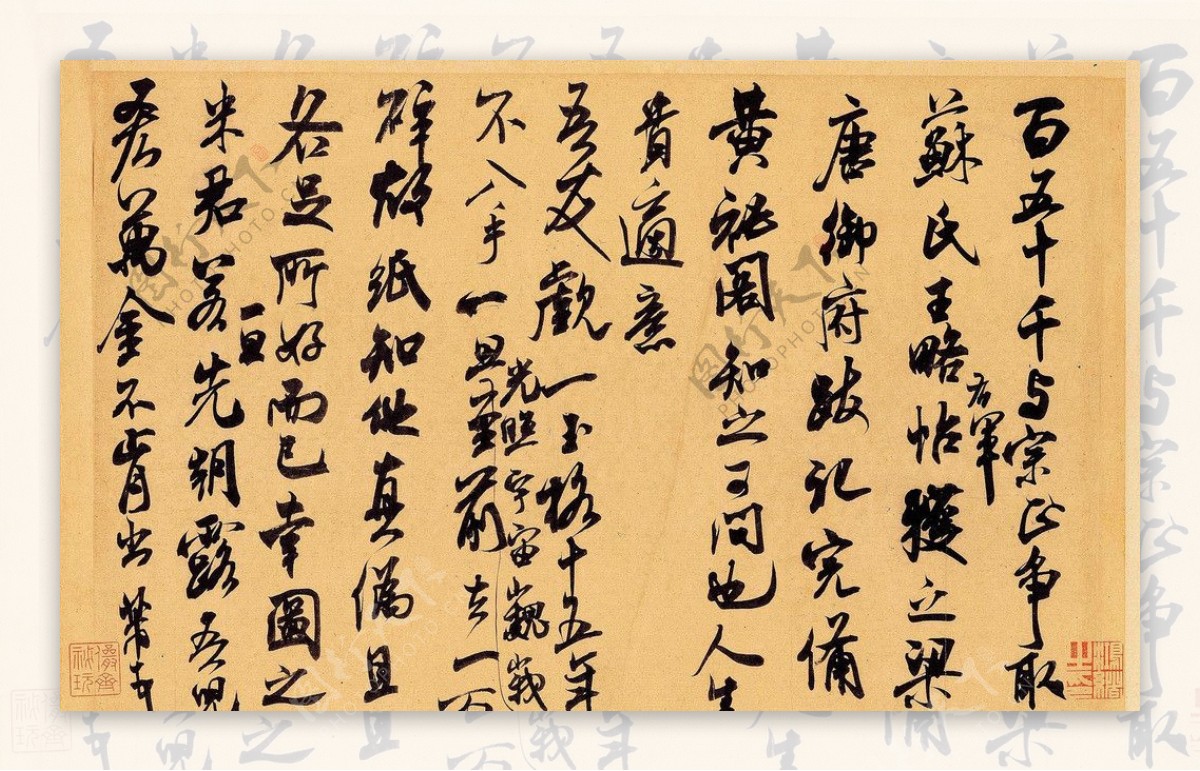 百五十千与宗正争取
蘇氏王略帖獲之梁
右軍
唐御府跋記完備
黃秘閣知之可問也人生
貴適意
吾友觀一玉格十五年
光照宇宙巍峩
不入手一旦至前去一百
碎故紙知他真偽且
各足所好而已幸圖之
一旦
米君若先朝露吾兒
吝萬金不肯出芾
儼齋
秘玩
图行天下
PHOTOPHOTO.CN